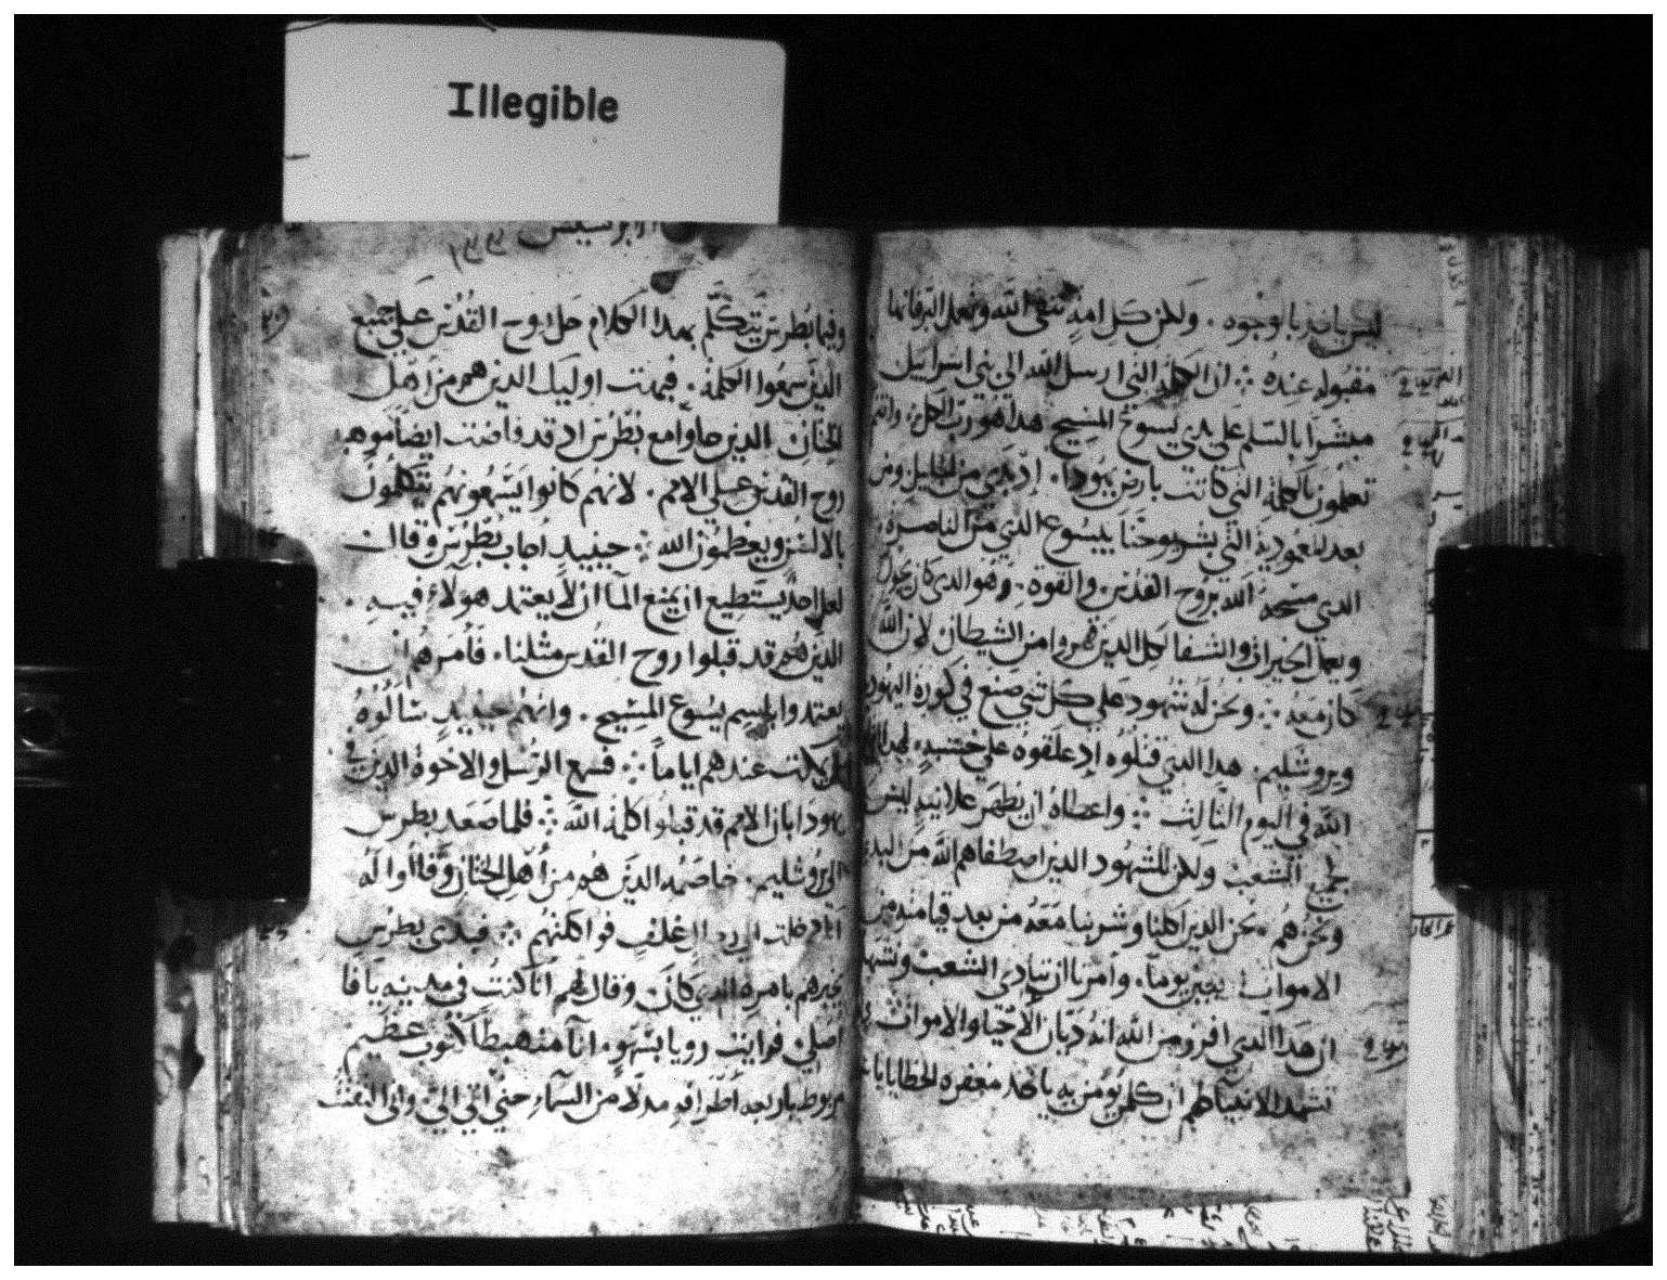 Illegible
ليس ياخذ بالوجوه . ولكن كل امه تتقي الله وتعمل البر فانها
مقبوله عنده ܀ ان الكلمه التي ارسل الله الي بني اسراييل
مبشرا بالسلم علي يدي يسوع المسيح هدا هو رب الكل وانتم
تعلمون بالكلمة التي كانت بارض يهودا . اد بدي من الجليل ومن
بعد المعودية التي بشر يوحنا بيسوع الدي من الناصرة
الدي مسحه الله بروح القدس والقوة . وهو الدي كان يجول
ويعمل الخيرات والشفا لكل الدين قهروا من الشيطان لان الله
كان معه ܀ ونحن له شهود علي كل شي صنع في كورة اليهود
ويروشليم . هدا الدي قتلوه اد علقوه علي خشبه
الله في اليوم التالت ܀ واعطاه ان يظهر علانيه ليس
لجميع الشعب ولكن للشهود الدين اصطفاهم الله من البدي
ونحن هم نحن الدين اكلنا وشربنا معه من بعد قيامته من
الاموات يوما . وامرنا ان ننادي الشعب ونشهد
ان هدا الدي افرز من الله انه ديان الاحيا والاموات
تشهد الانبيا كلهم ان كل من يومن به ياخد مغفرة الخطايا
الابركسيس
وفيما بطرس يتكلم بهدا الكلام حل روح القدس علي جميع
الدين سمعوا الكلمة . فبهت اوليك الدين هم من اهل
الختان الدين جاوا مع بطرس اد قد فاضت ايضا موهبة
روح القدس علي الامم . لانهم كانوا يسمعونهم يتكلمون
بالالسن ويعظمون الله ܀ حينيد اجاب بطرس وقال
لعل احد يستطيع ان يمنع الما ان لا يعتمد هولاء فيه .
الدين هم قد قبلوا روح القدس مثلنا . فامرهم ان
يعتمدوا باسم يسوع المسيح . وانهم حينيد سالوه
ان يمكث عندهم اياما ܀ فسمع الرسل والاخوة الدين في
يهودا بان الامم قد قبلوا كلمة الله ܀ فلما صعد بطرس
الي يروشليم . خاصمه الدين هم من اهل الختان وقالوا له
انك دخلت الي رجال غلف فواكلتهم ܀ فبدي بطرس
يخبرهم بامره الدي كان . وقال لهم انا كنت في مدينه يافا
اصلي فرايت رويا بسهو . انآ منهبطا كثوب عظيم
مربوط باربعه اطرافه مدلا من السماء حتي اتي الي واني التفت